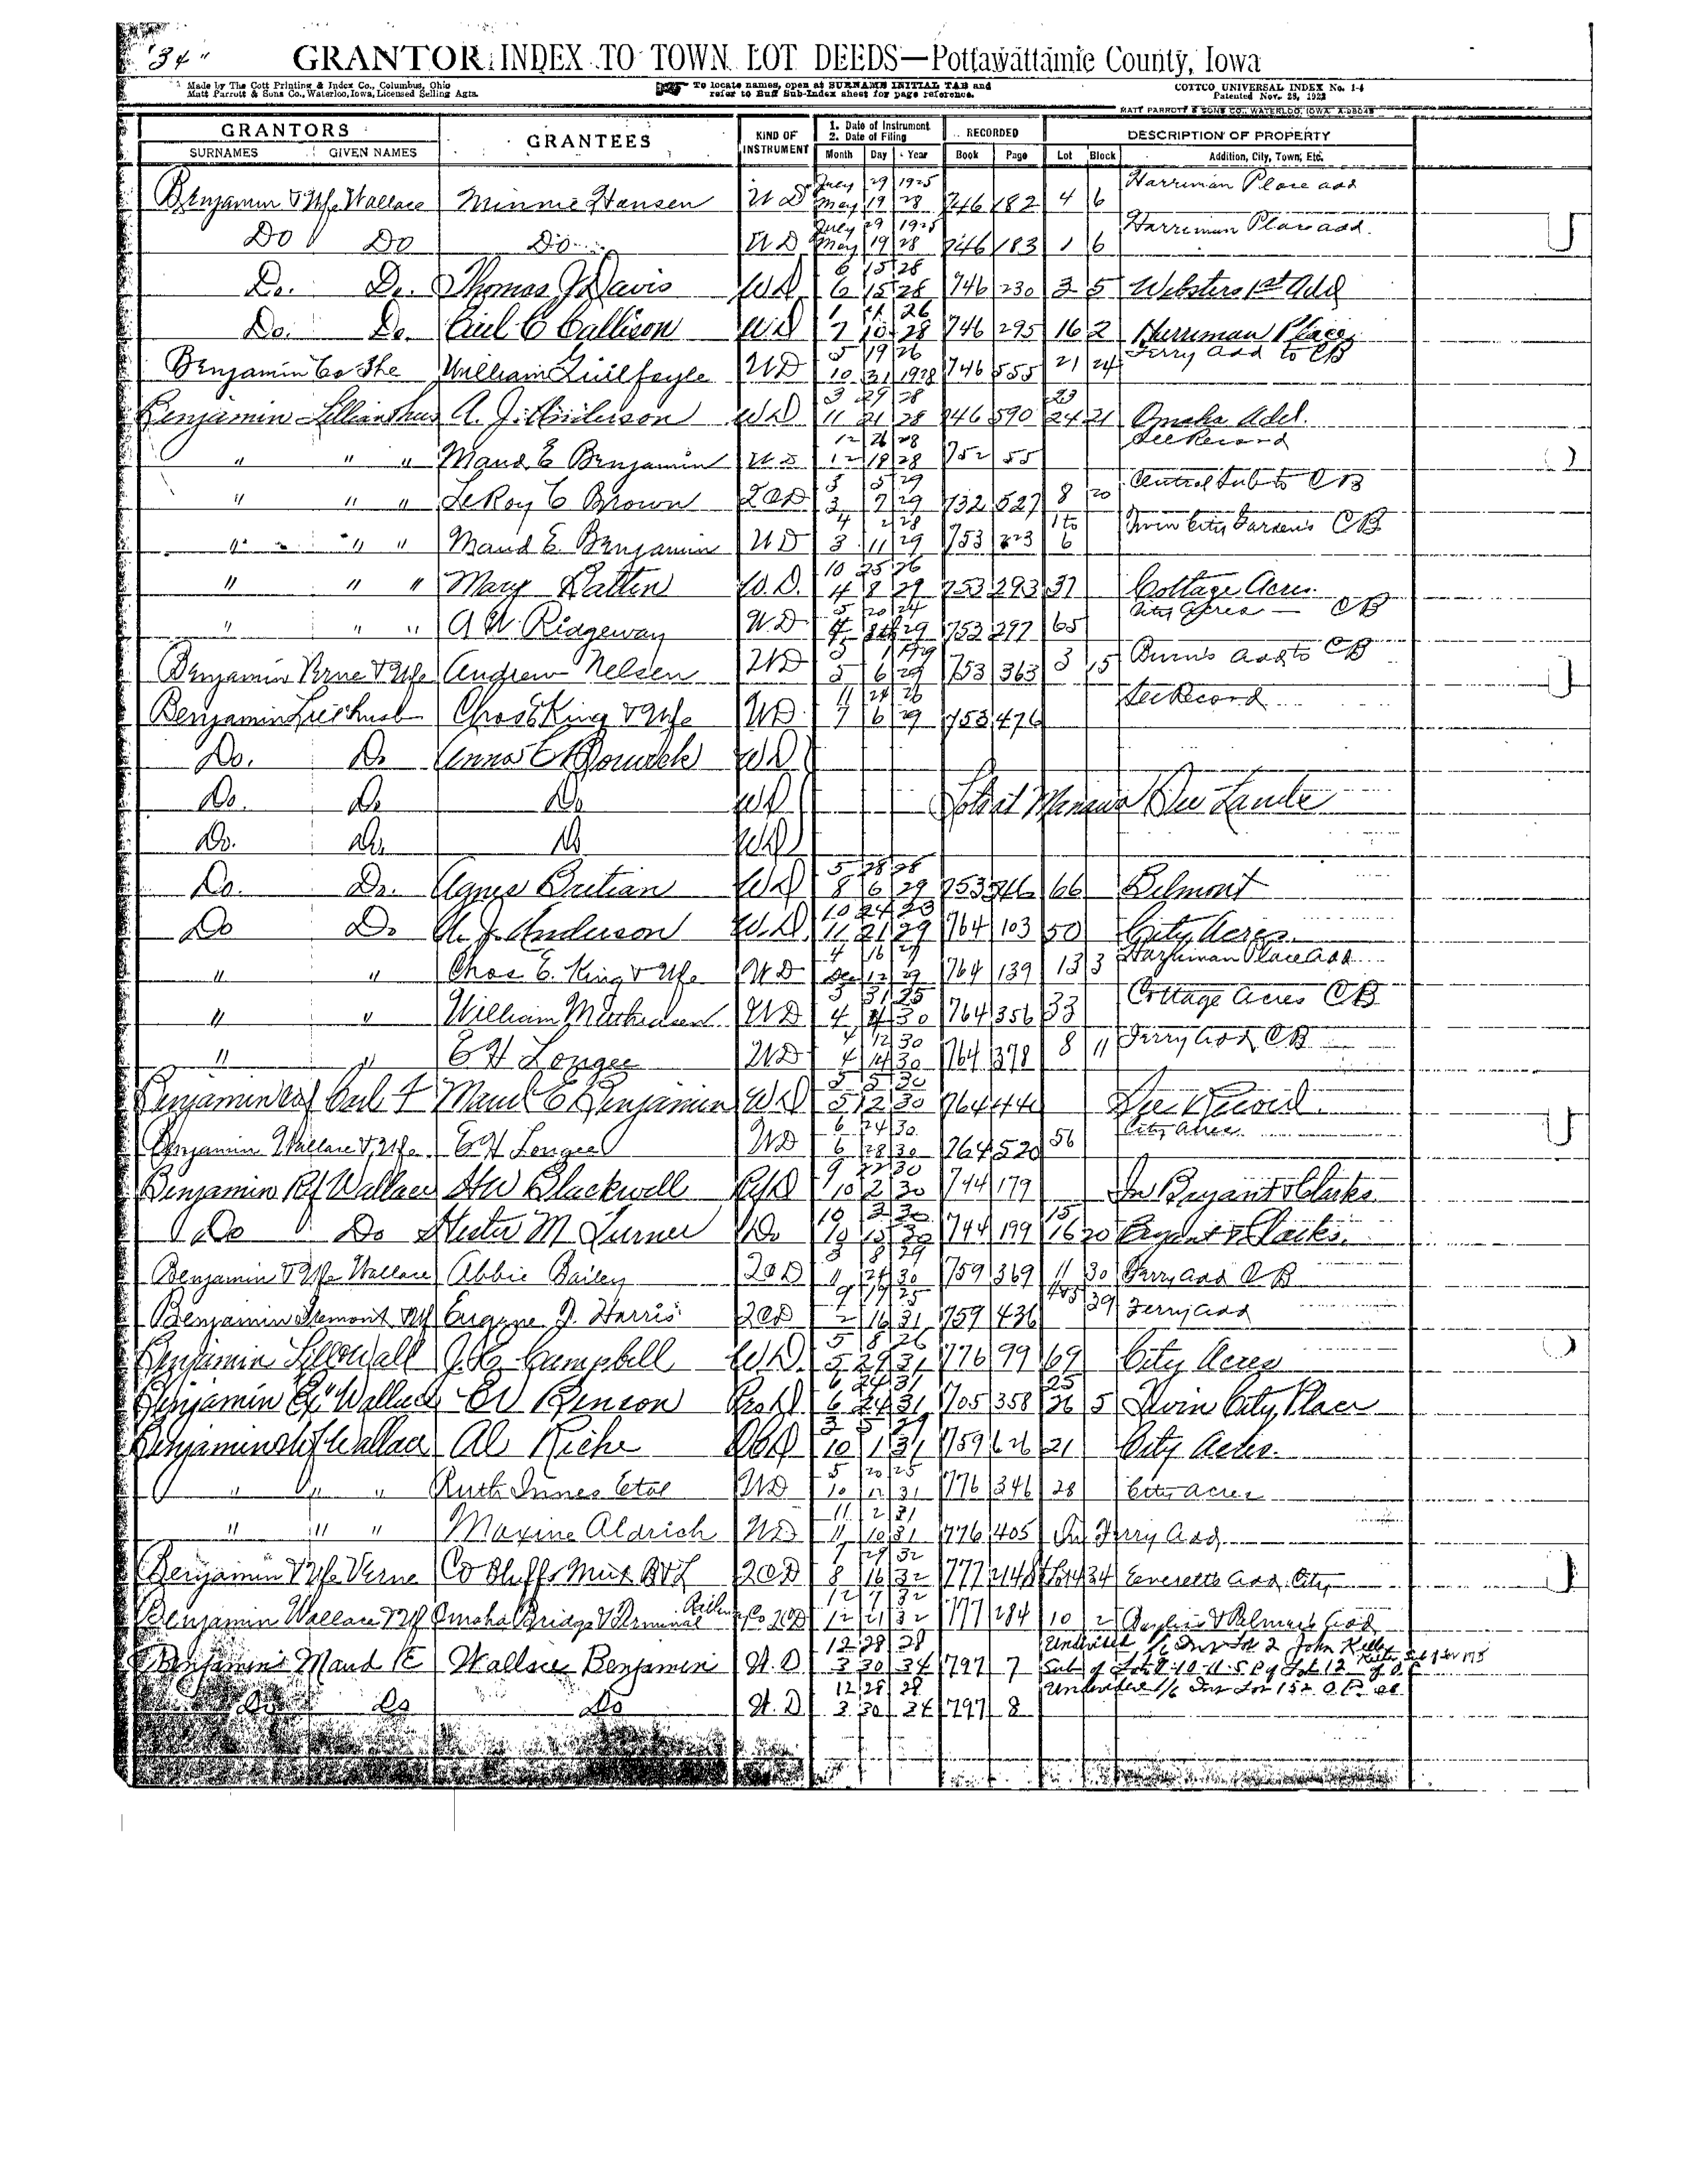 "34"
GRANTOR INDEX TO TOWN LOT DEEDS—Pottawattamie County, Iowa
Made by The Cott Printing & Index Co., Columbus, Ohio
Matt Parrott & Sons Co., Waterloo, Iowa, Licensed Selling Agts.
To locate names, open at SURNAME INITIAL TAB and
refer to Buff Sub-Index sheet for page reference.
COTTCO UNIVERSAL INDEX No. 1-4
Patented Nov. 28, 1922
MATT PARROTT & SONS CO., WATERLOO, IOWA
GRANTORS GRANTEES KIND OF INSTRUMENT 1. Date of Instrument 2. Date of Filing RECORDED DESCRIPTION OF PROPERTY
SURNAMES GIVEN NAMES Month Day Year Book Page Lot Block Addition, City, Town, Etc.
July 29 1925 Harriman Place add
Benjamin & Wfe Wallace Minnie Hansen WD May 19 28 746 182 4 6
July 29 1925 Harriman Place add.
Do Do Do WD May 19 28 746 183 1 6
6 15 28
Do. Do. Thomas J Davis WD 6 15 28 746 230 3 5 Websters 1st Add
26
Do. Do. Callison WD 7 10 28 746 295 16 2 Harriman Place
5 19 26 Ferry add to CB
Benjamin Co The William Guilfoyle WD 10 31 1928 746 555 21 24
3 29 28 23
Benjamin Lillian & hus A. J. Anderson WD 11 21 28 746 590 24 21 Omaha Add.
12 26 28 See Record
" " " Maud E Benjamin WD 12 28 752 55
3 5 29 Central Sub to CB
" " " LeRoy C Brown QCD 3 7 29 732 527 8 20
4 2 28 1 to Twin City Gardens CB
" " " Maud E. Benjamin WD 3 11 29 753 223 6
10 25 26
" " " Mary Batten W.D. 4 8 29 753 293 37 Cottage Acres.
5 20 24 City Acres — CB
" " " A W. Ridgeway WD 4 8 29 753 297 65
Burns add to CB
Benjamin Verne & Wfe Andrew Nelsen WD 5 6 29 753 363 3 15
11 24 26 See Record
Benjamin & husb Chas E King & Wfe WD 7 6 29 753 476
Do. Do Anna E WD
Do. Do Do WD Lots at Manawa See Lands
Do. Do. Do WD
5 28 28
Do. Do. Agnes WD 8 6 29 753 546 66 Belmont
10 24 23
Do Do A. J. Anderson W.D. 11 21 29 764 103 50 City Acres.
4 16 27 Harriman Place Add
" " Chas E. King & Wfe WD Dec 12 29 764 139 13 3
3 31 25 Cottage Acres CB
" " William WD 4 4 30 764 356 33
4 12 30 Ferry Add, CB
" " E H Lougee WD 4 14 30 764 378 8 11
5 5 30
Benjamin Carl F Maud E Benjamin WD 5 12 30 764 444 See Record.
6 24 30 City Acres
Benjamin Wallace & Wfe E H Lougee WD 6 28 30 764 520 56
9 22 30
Benjamin Rf Wallace HW Blackwell RfD 10 2 30 744 179 In Bryant & Clarks
10 3 30 15
Do Do Hester M Turner Do 10 30 744 199 16 20 Bryant & Clarks.
3 8 29
Benjamin & Wfe Wallace Abbie Bailey QCD 11 24 30 759 369 11 30 Ferry add CB
9 19 25
Benjamin Fremont & Wf Eugene J. Harris QCD 2 16 31 759 436 39 Ferry add
5 8 26
Benjamin J. C. Campbell WD. 5 29 31 776 99 69 City Acres
6 24 31 25
Benjamin Wallace Benson 6 24 31 705 358 26 5 Twin City Place
Benjamin Wallace Al Riche QCD 10 1 31 759 626 21 City Acres.
5 20 25
" " " Ruth Innes Etal WD 10 12 31 776 346 28 City Acres
11 2 31
" " " Maxine Aldrich WD 11 10 31 776 405 In Ferry Add
7 29 32
Benjamin & Wfe Verne Co Bluffs Mut B&L QCD 8 16 32 777 214 34 Everetts add City
12 7 32
Benjamin Wallace & Wf Omaha Bridge & Terminal Railway Co QCD 12 21 32 777 284 10 2 & Palmers Add
12 28 28 Undivided 1/6 Int Lot 2 John
Benjamin Maud E Wallace Benjamin W.D 3 30 34 797 7 Sub of
12 28 28 Undivided 1/6 Int Lot 152 O.P.
Do Do Do W.D 3 30 34 797 8